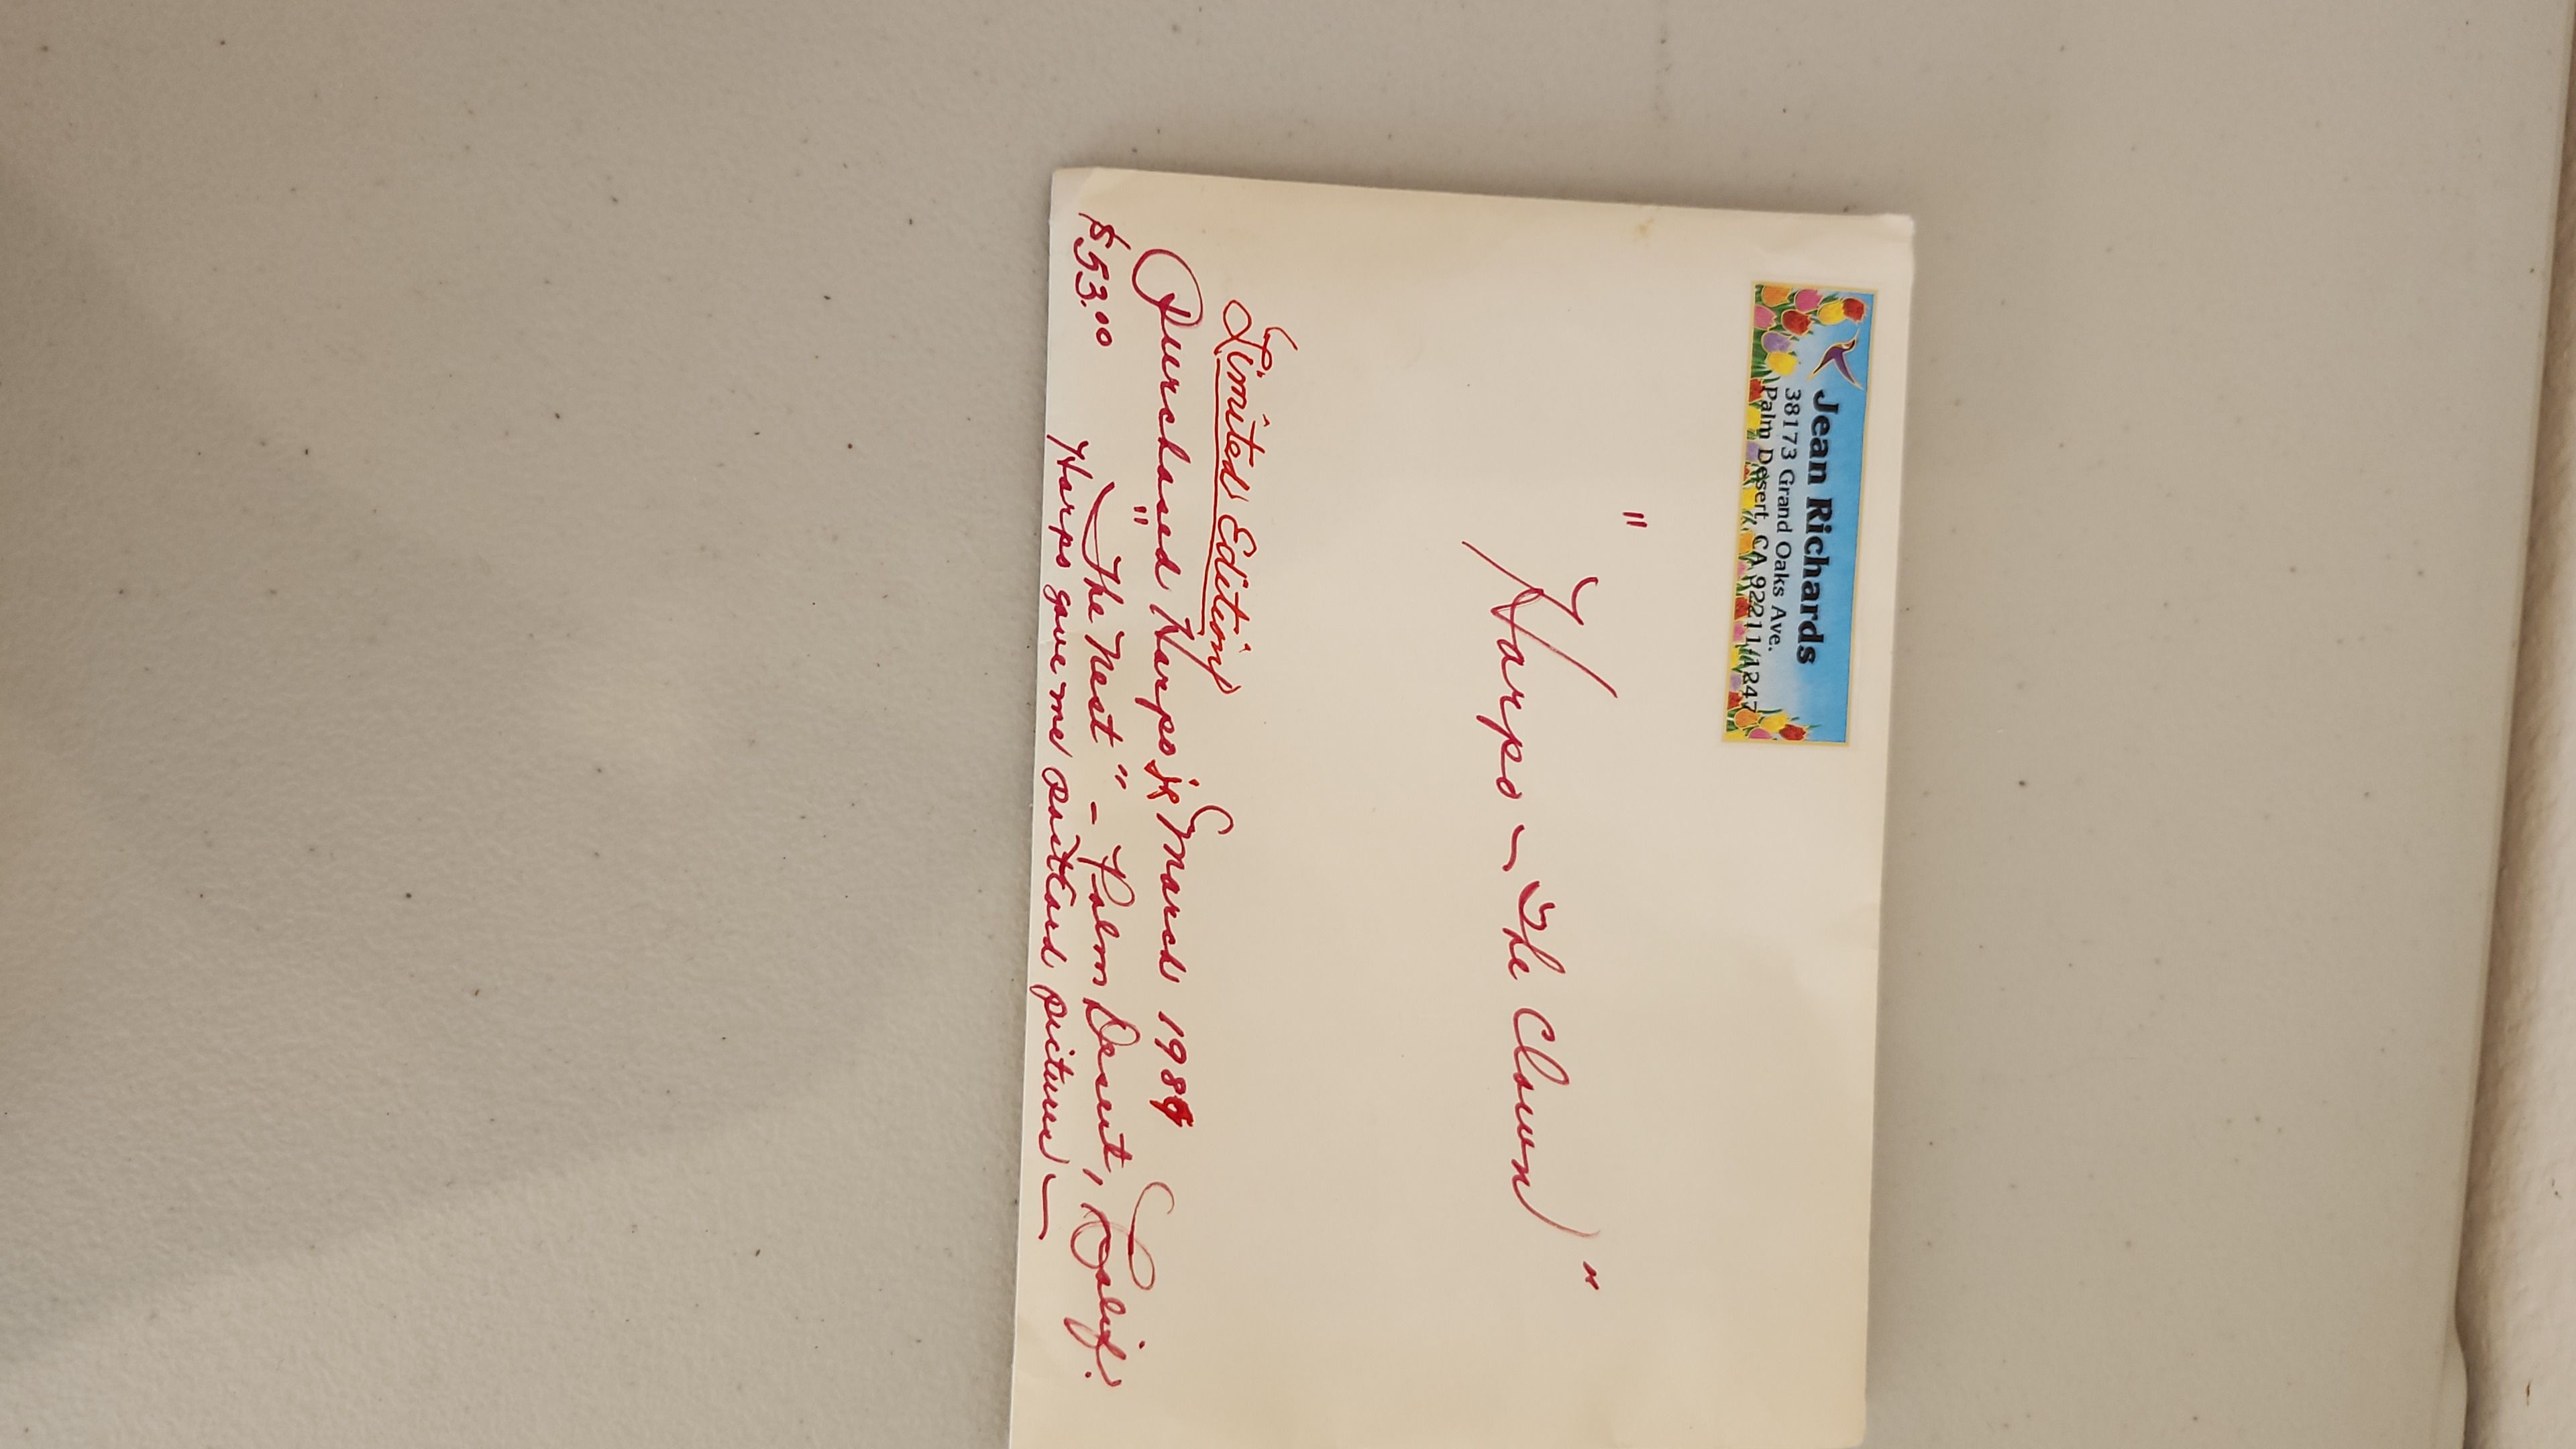 Jean Richards
38173 Grand Oaks Ave.
Palm Desert, CA 92211-1247
" Harpo – The Clown "
Limited Edition
Purchased Harpo in March 1989
" The Nest " – Palm Desert, Calif.
$53.00
Harpo gave me picture –